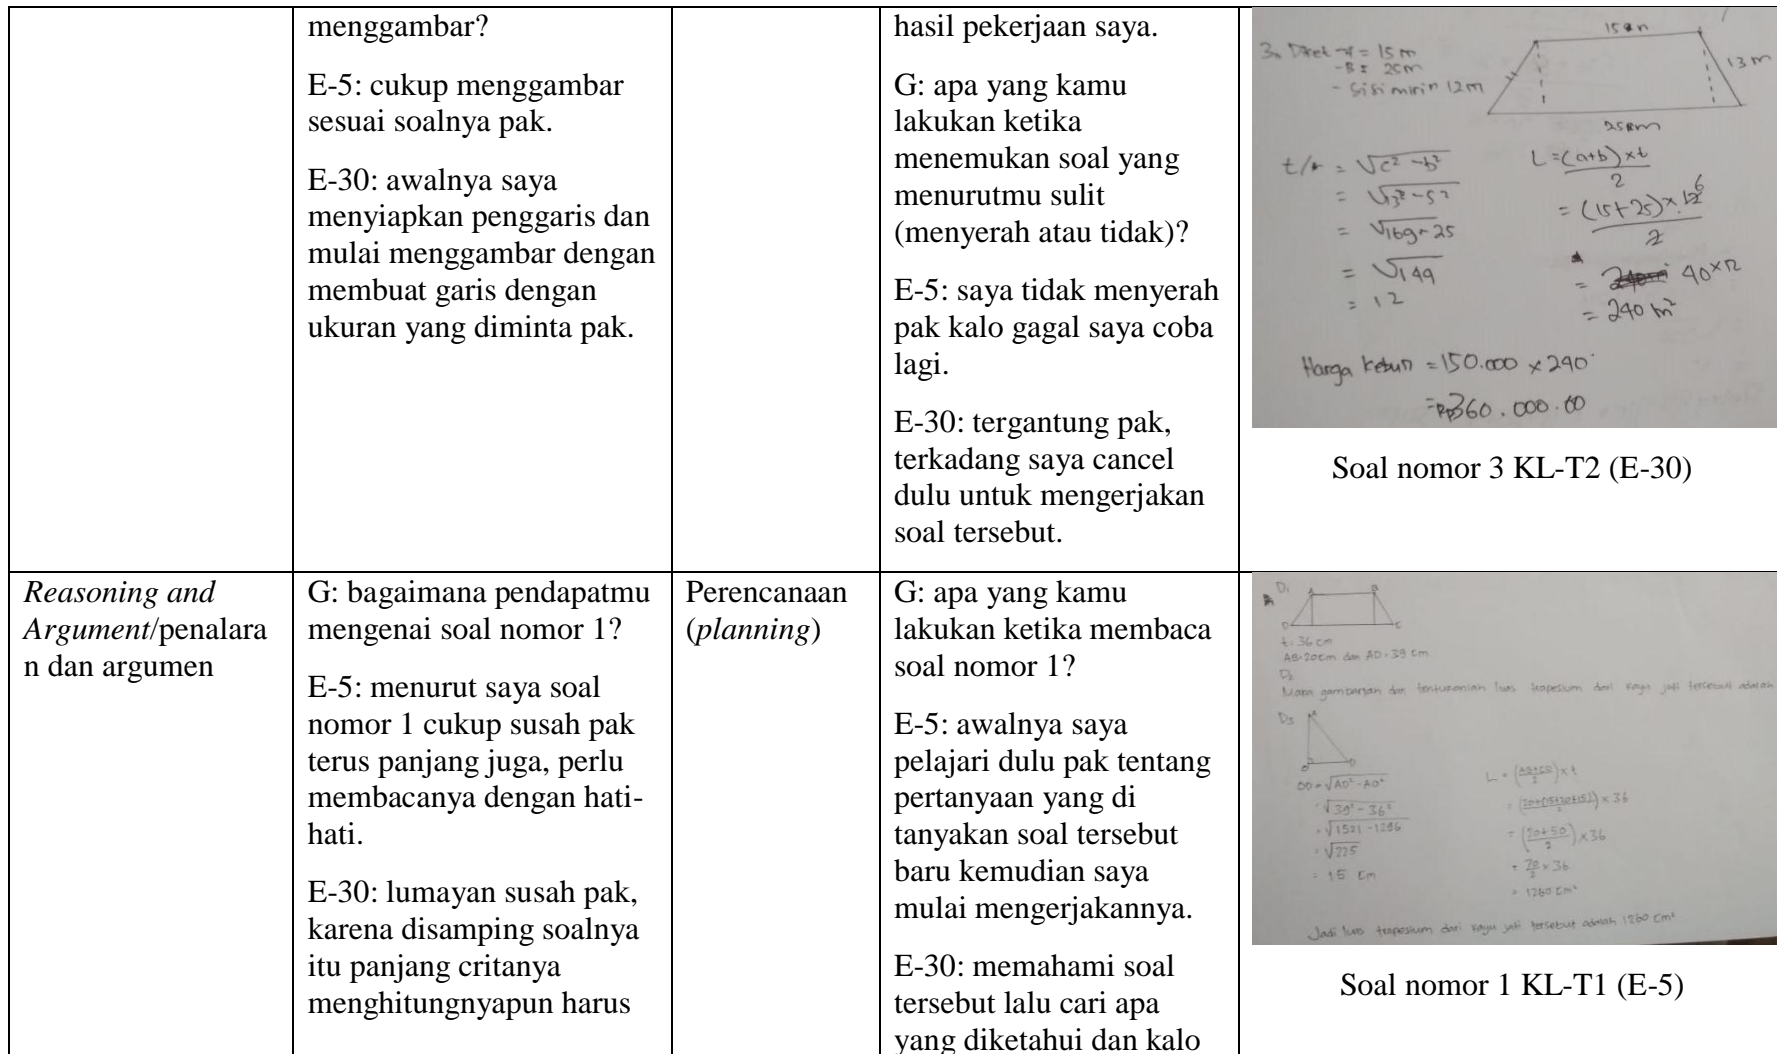 menggambar?
E-5: cukup menggambar
sesuai soalnya pak.
E-30: awalnya saya
menyiapkan penggaris dan
mulai menggambar dengan
membuat garis dengan
ukuran yang diminta pak.
hasil pekerjaan saya.
G: apa yang kamu
lakukan ketika
menemukan soal yang
menurutmu sulit
(menyerah atau tidak)?
E-5: saya tidak menyerah
pak kalo gagal saya coba
lagi.
E-30: tergantung pak,
terkadang saya cancel
dulu untuk mengerjakan
soal tersebut.
= 15 m
= 25m
- Sisi mirin 12m
15 m
13 m
25 m
= √c² - b²
= √169-25
= √149
= 12
L = (a+b) × t
2
= (15+25) × 12 6
2
= 40×12
= 240 m²
Harga kebun = 150.000 × 240
= Rp360.000.00
Soal nomor 3 KL-T2 (E-30)
Reasoning and
Argument/penalara
n dan argumen
G: bagaimana pendapatmu
mengenai soal nomor 1?
E-5: menurut saya soal
nomor 1 cukup susah pak
terus panjang juga, perlu
membacanya dengan hati-
hati.
E-30: lumayan susah pak,
karena disamping soalnya
itu panjang critanya
menghitungnyapun harus
Perencanaan
(planning)
G: apa yang kamu
lakukan ketika membaca
soal nomor 1?
E-5: awalnya saya
pelajari dulu pak tentang
pertanyaan yang di
tanyakan soal tersebut
baru kemudian saya
mulai mengerjakannya.
E-30: memahami soal
tersebut lalu cari apa
yang diketahui dan kalo
D₁
A B
D C
t = 36 cm
AB = 20 cm dan AD = 39 cm
D₂
dan luas trapesium dari kayu jati tersebut adalah
D₃
= √39² - 36²
= √1521 - 1296
= √225
= 15 cm
L = (AB+CD / 2) × t
= (20+(15+20+15) / 2) × 36
= (20+50 / 2) × 36
= 70/2 × 36
= 1260 cm²
Jadi luas trapesium dari kayu jati tersebut adalah 1260 cm²
Soal nomor 1 KL-T1 (E-5)